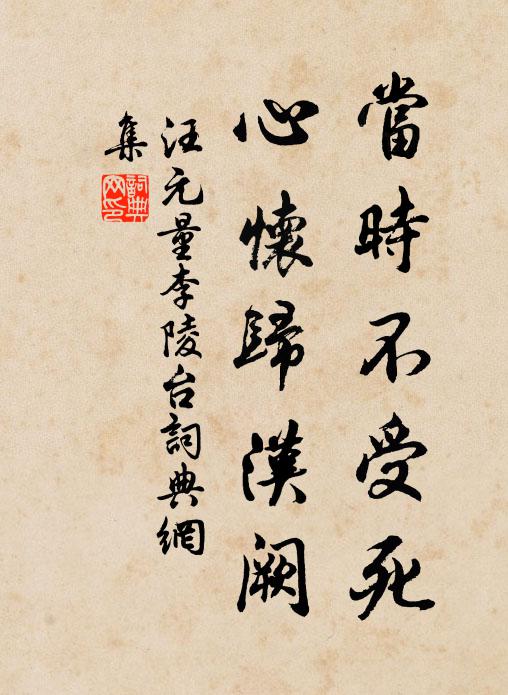 當時不受死
心懷歸漢闕
汪元量李陵台詞典網
集
詞典
网印